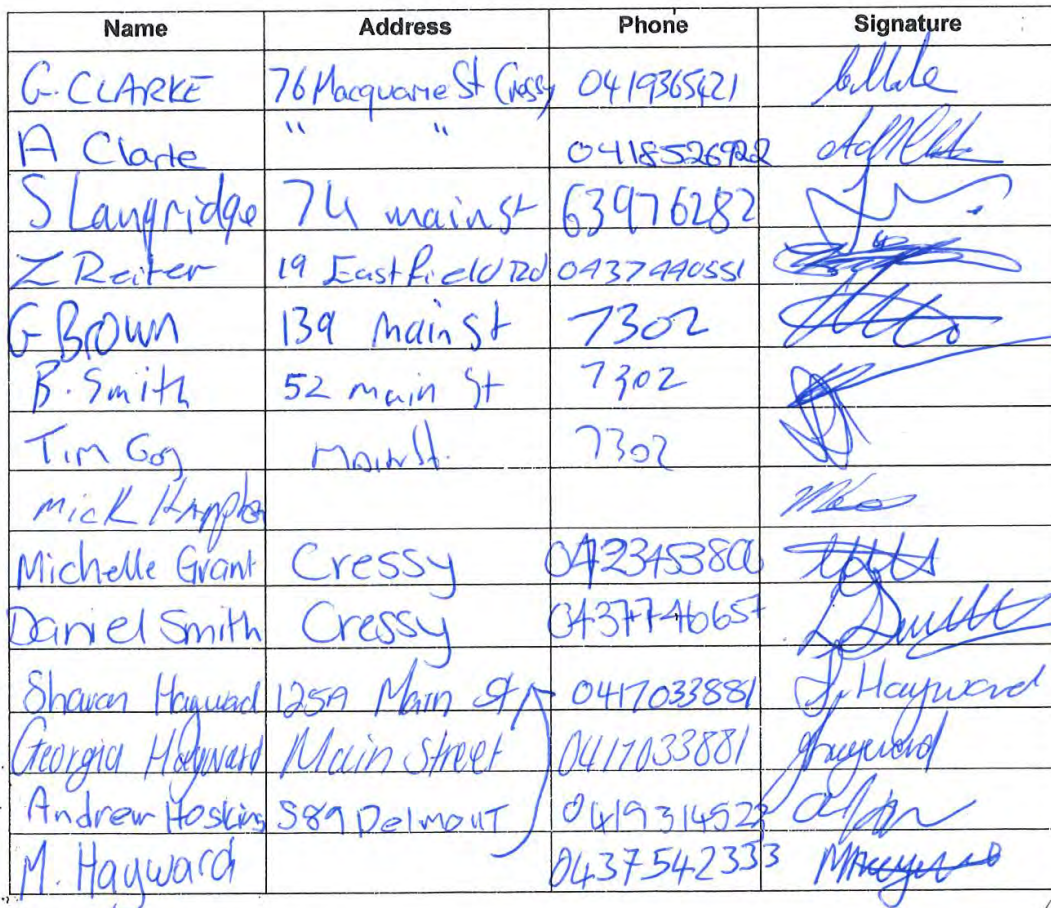 Name Address Phone Signature
G. CLARKE 76 Macquarie St Cressy 0419365421
A Clarke " " 0418526922
S Langridge 74 main st 63976282
Z Reiter 19 Eastfield Rd 0437440551
G Brown 139 Main St 7302
B. Smith 52 main St 7302
Tim Main St. 7302
Mick
Michelle Grant Cressy
Daniel Smith Cressy 0437746657
Sharon Hayward 125A Main St 0417033881 S. Hayward
Georgia Hayward Main Street 0417033881 Hayward
Andrew Hoskins 589 Delmont 0419314522
M. Hayward 0437542333